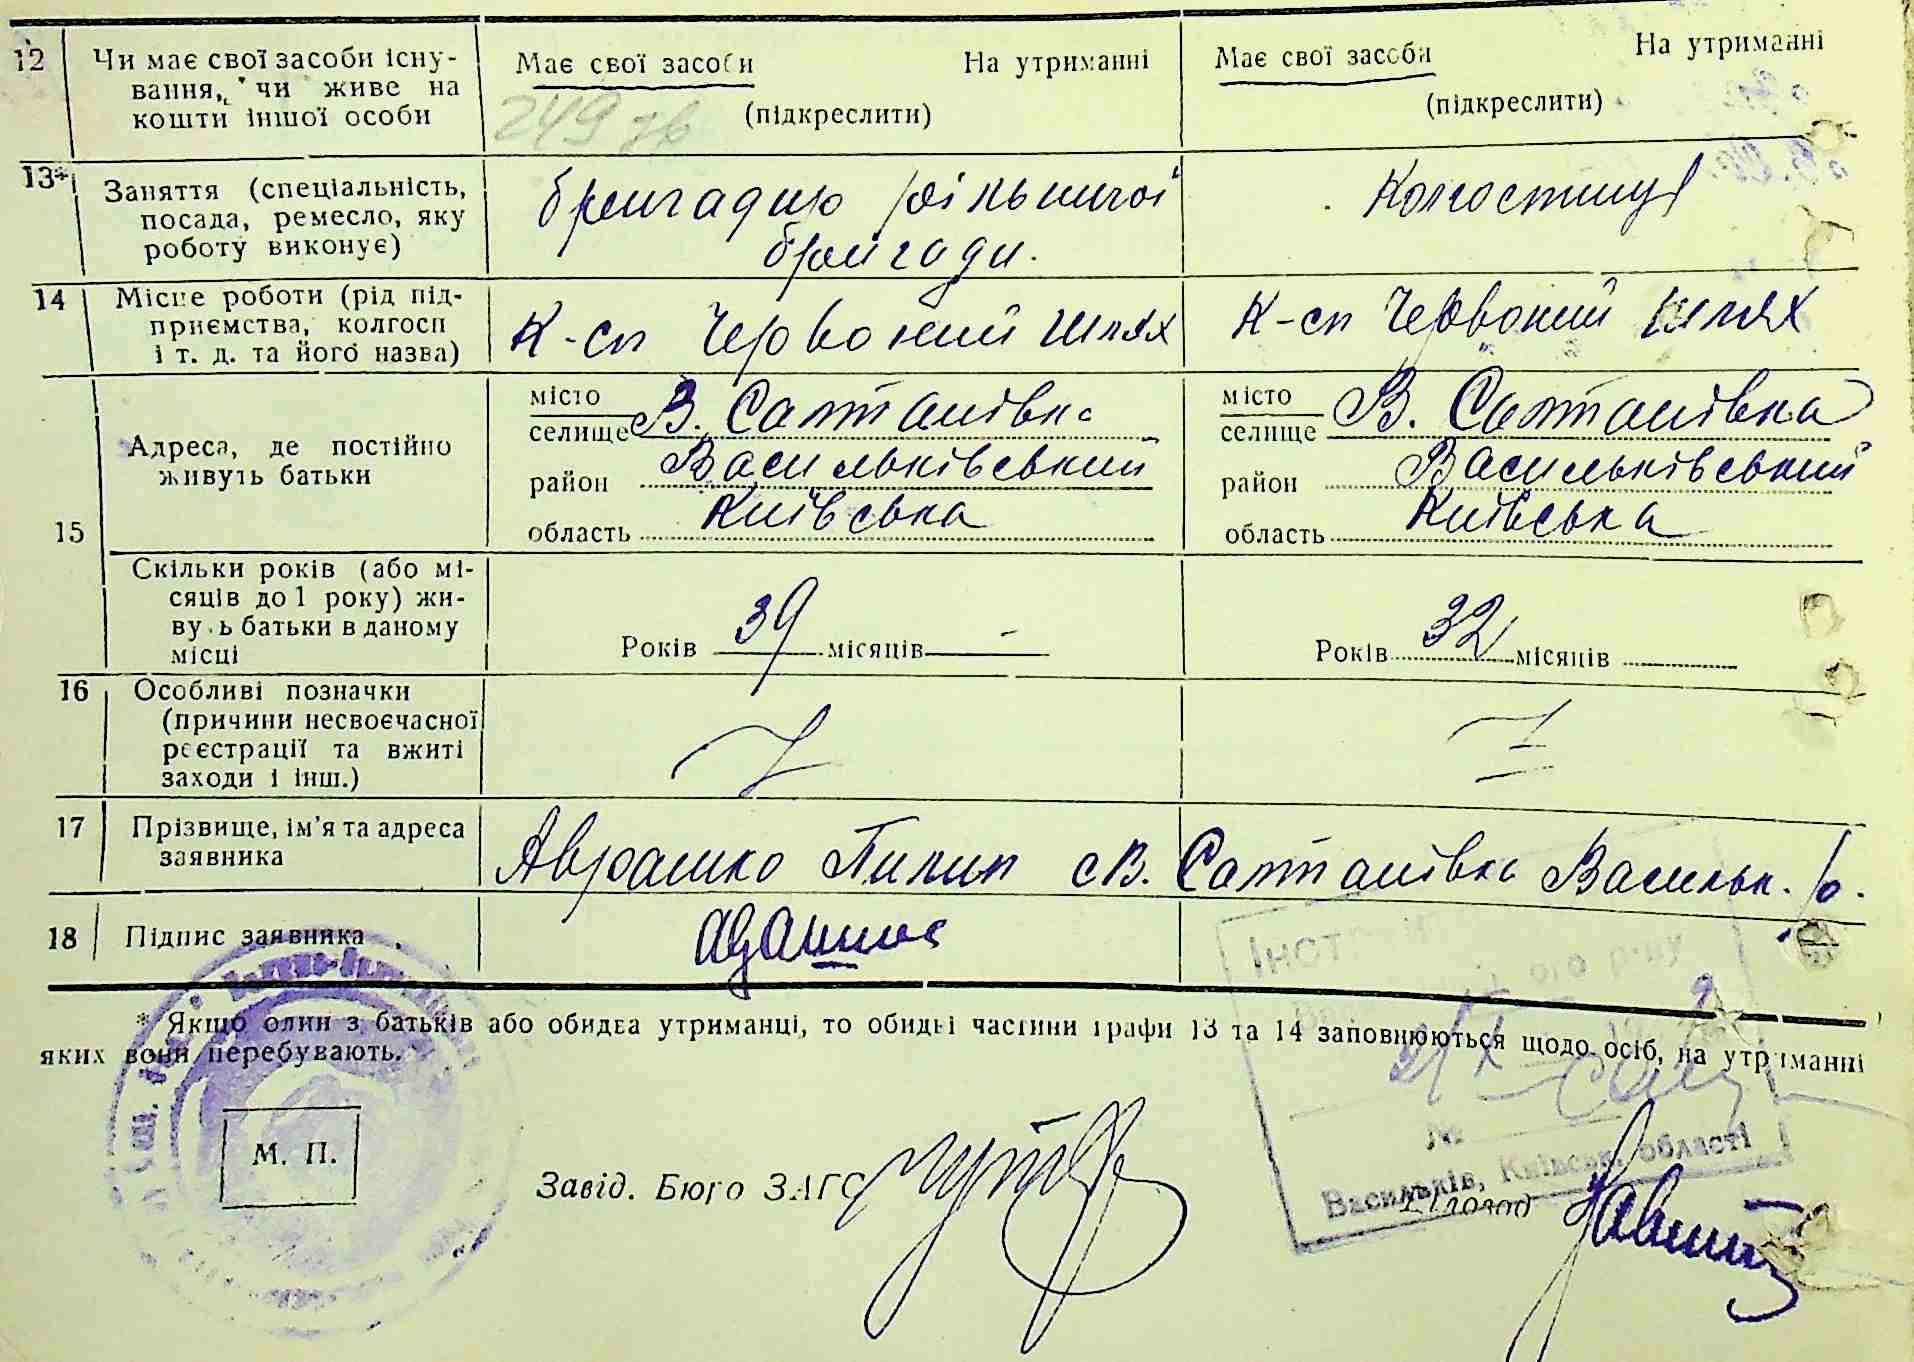 12 Чи має свої засоби існу-
вання, чи живе на
кошти іншої особи
Має свої засоби На утриманні
(підкреслити)
249
Має свої засоби На утриманні
(підкреслити)
13* Заняття (спеціальність,
посада, ремесло, яку
роботу виконує)
бригадир рільничої
бригади.
Колгоспниця
14 Місце роботи (рід під-
приємства, колгосп
і т. д. та його назва)
К-сп Червоний Шлях
К-сп Червоний шлях
15 Адреса, де постійно
живуть батьки
місто
селище В. Солтанівка
район Васильківський
область Київська
місто
селище В. Солтанівка
район Васильківський
область Київська
Скільки років (або мі-
сяців до 1 року) жи-
вуть батьки в даному
місці
Років 39 місяців –
Років 32 місяців
16 Особливі позначки
(причини несвоєчасної
реєстрації та вжиті
заходи і інш.)
17 Прізвище, ім'я та адреса
заявника
Аврашко Пилип с В. Солтанівка Васильк. р.
18 Підпис заявника
* Якщо один з батьків або обидва утриманці, то обидві частини графи 13 та 14 заповнюються щодо осіб, на утриманні
яких вони перебувають.
М. П.
Завід. Бюро ЗАГС
Діловод
№
Васильків, Київськ. області